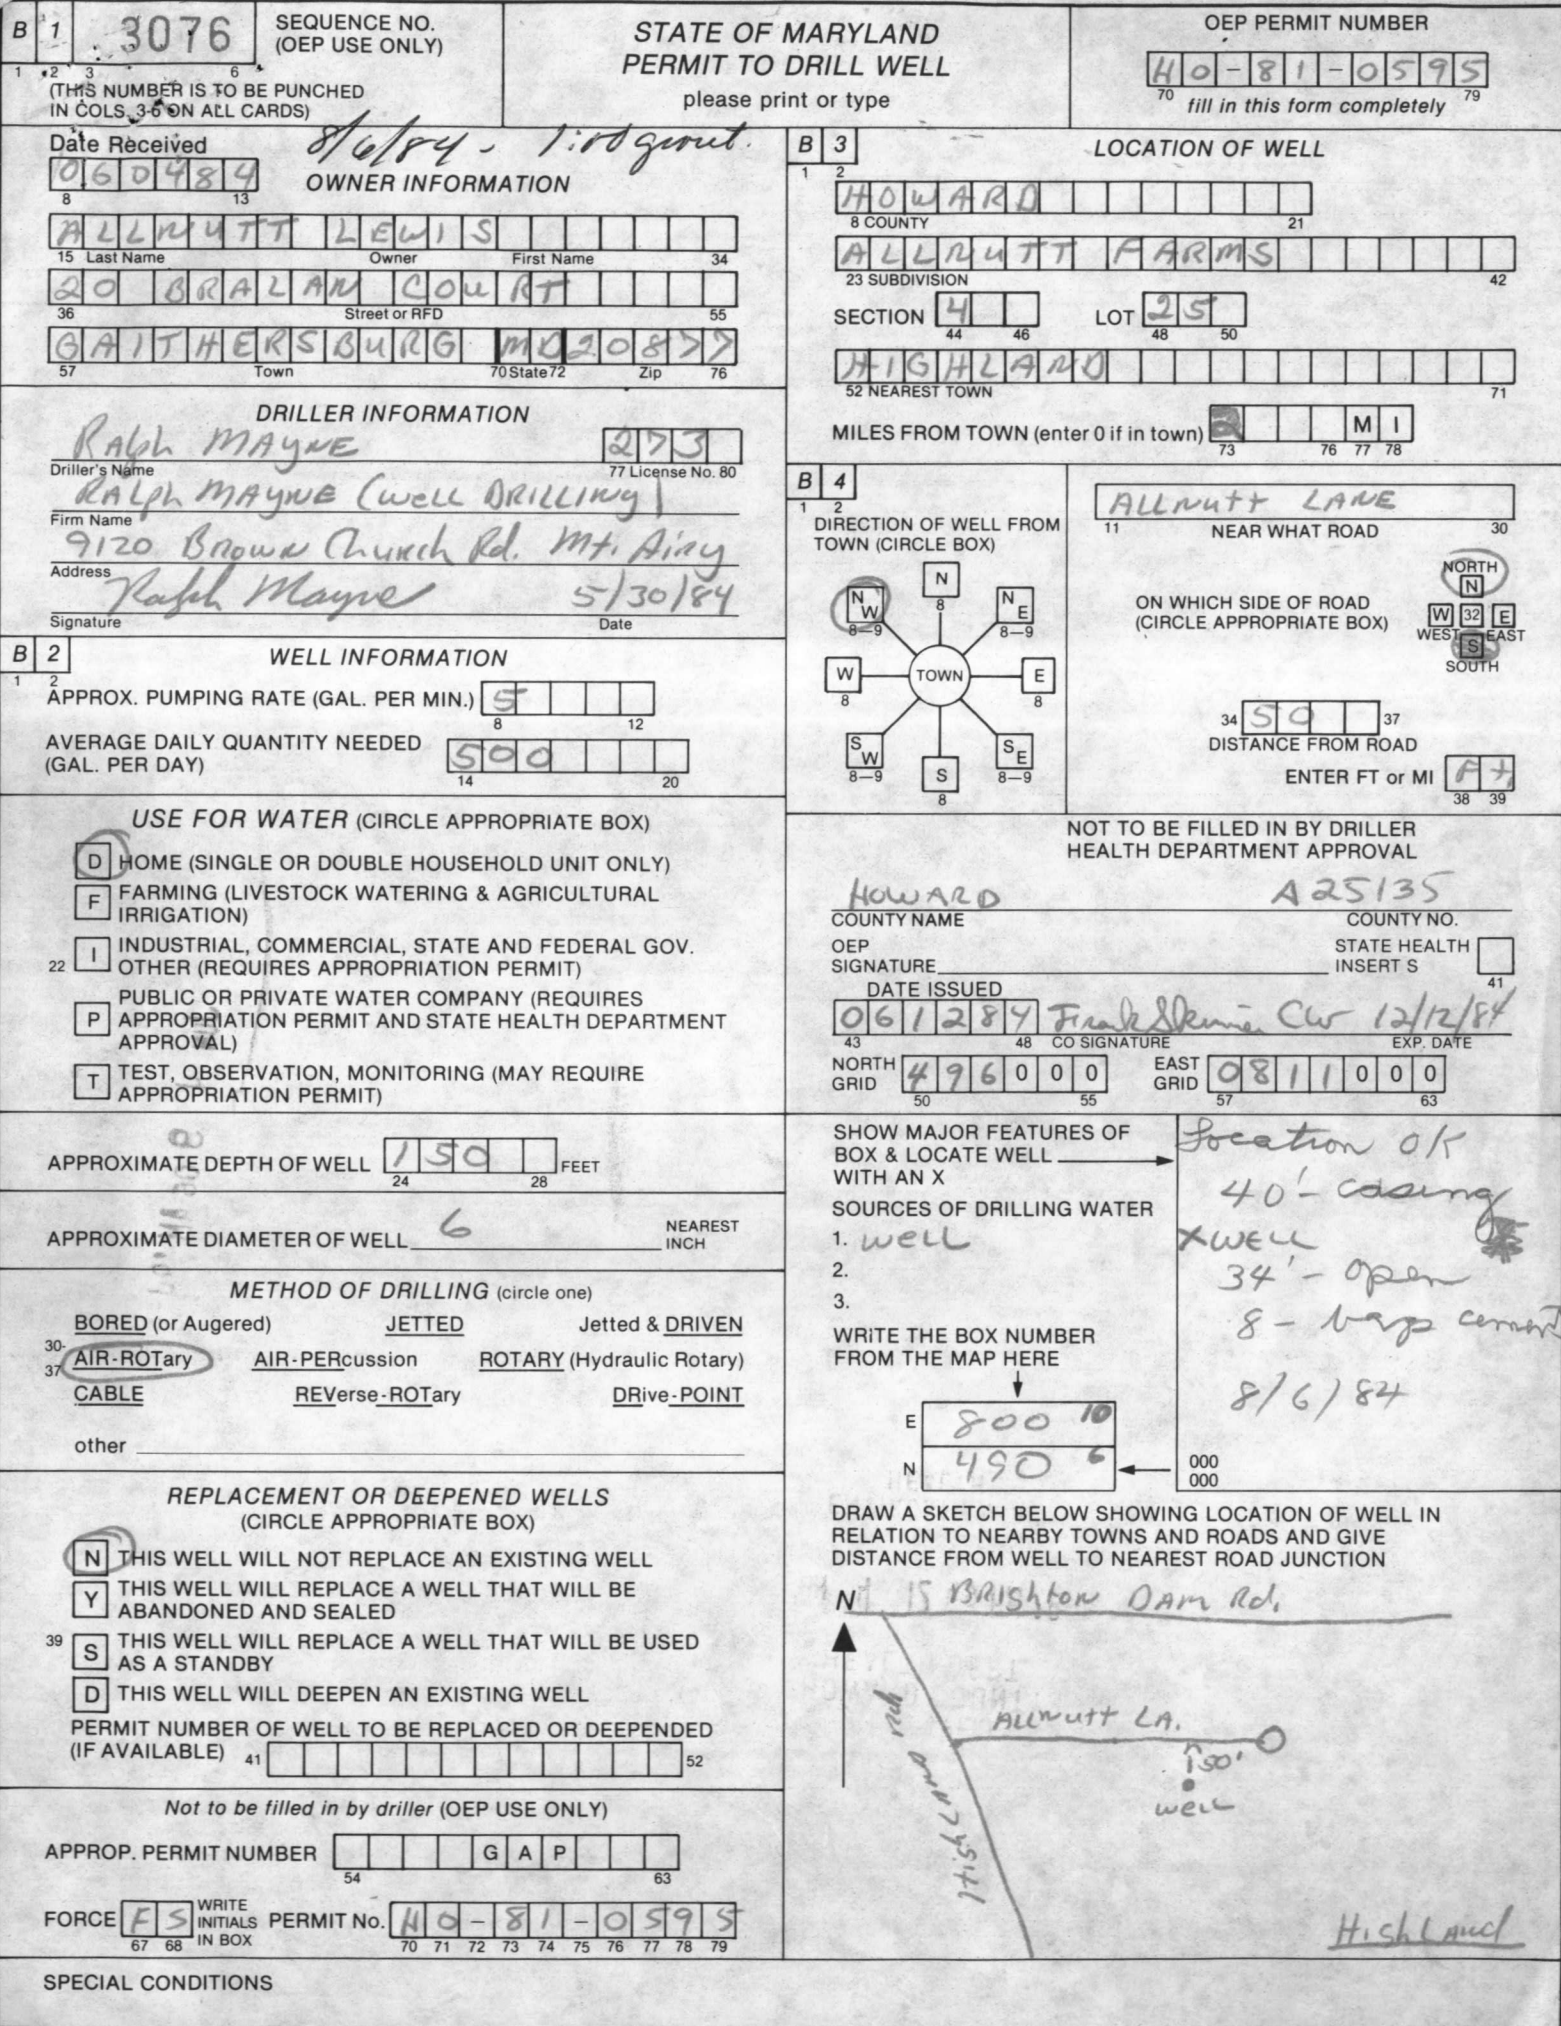 B 1 3076 SEQUENCE NO. (OEP USE ONLY)
1 2 3 6
(THIS NUMBER IS TO BE PUNCHED
IN COLS. 3-6 ON ALL CARDS)
STATE OF MARYLAND
PERMIT TO DRILL WELL
please print or type
OEP PERMIT NUMBER
HO-81-0595
70 79
fill in this form completely
Date Received
060484
8 13
8/6/84 - grout.
OWNER INFORMATION
ALLNUTT LEWIS
15 Last Name Owner First Name 34
20 BRALAN COURT
36 Street or RFD 55
GAITHERSBURG MD 20877
57 Town 70 State 72 Zip 76
DRILLER INFORMATION
Ralph MAYNE 273
Driller's Name 77 License No. 80
RALPh MAYNE (well DRILLING)
Firm Name
9120 Brown Church Rd. Mt. Airy
Address
Ralph Mayne 5/30/84
Signature Date
B 2 WELL INFORMATION
1 2
APPROX. PUMPING RATE (GAL. PER MIN.) 5
8 12
AVERAGE DAILY QUANTITY NEEDED
(GAL. PER DAY) 500
14 20
USE FOR WATER (CIRCLE APPROPRIATE BOX)
D HOME (SINGLE OR DOUBLE HOUSEHOLD UNIT ONLY)
F FARMING (LIVESTOCK WATERING & AGRICULTURAL
IRRIGATION)
22 I INDUSTRIAL, COMMERCIAL, STATE AND FEDERAL GOV.
OTHER (REQUIRES APPROPRIATION PERMIT)
P PUBLIC OR PRIVATE WATER COMPANY (REQUIRES
APPROPRIATION PERMIT AND STATE HEALTH DEPARTMENT
APPROVAL)
T TEST, OBSERVATION, MONITORING (MAY REQUIRE
APPROPRIATION PERMIT)
APPROXIMATE DEPTH OF WELL 150 FEET
24 28
APPROXIMATE DIAMETER OF WELL 6 NEAREST
INCH
METHOD OF DRILLING (circle one)
BORED (or Augered) JETTED Jetted & DRIVEN
30-
37 AIR-ROTary AIR-PERcussion ROTARY (Hydraulic Rotary)
CABLE REVerse-ROTary DRive-POINT
other
REPLACEMENT OR DEEPENED WELLS
(CIRCLE APPROPRIATE BOX)
N THIS WELL WILL NOT REPLACE AN EXISTING WELL
Y THIS WELL WILL REPLACE A WELL THAT WILL BE
ABANDONED AND SEALED
39 S THIS WELL WILL REPLACE A WELL THAT WILL BE USED
AS A STANDBY
D THIS WELL WILL DEEPEN AN EXISTING WELL
PERMIT NUMBER OF WELL TO BE REPLACED OR DEEPENDED
(IF AVAILABLE) 41 52
Not to be filled in by driller (OEP USE ONLY)
APPROP. PERMIT NUMBER G A P
54 63
FORCE FS WRITE INITIALS IN BOX PERMIT No. HO-81-0595
67 68 70 71 72 73 74 75 76 77 78 79
SPECIAL CONDITIONS
B 3 LOCATION OF WELL
1 2
HOWARD
8 COUNTY 21
ALLNUTT FARMS
23 SUBDIVISION 42
SECTION 4 LOT 25
44 46 48 50
HIGHLAND
52 NEAREST TOWN 71
MILES FROM TOWN (enter 0 if in town) 2 M I
73 76 77 78
B 4
1 2
DIRECTION OF WELL FROM
TOWN (CIRCLE BOX)
N
8
N W
8-9
N E
8-9
W
8
TOWN
E
8
S W
8-9
S
8
S E
8-9
ALLNutt LANE
11 NEAR WHAT ROAD 30
ON WHICH SIDE OF ROAD
(CIRCLE APPROPRIATE BOX)
NORTH
N
W 32 E
WEST EAST
S
SOUTH
34 50 37
DISTANCE FROM ROAD
ENTER FT or MI Ft.
38 39
NOT TO BE FILLED IN BY DRILLER
HEALTH DEPARTMENT APPROVAL
HOWARD A25135
COUNTY NAME COUNTY NO.
OEP
SIGNATURE STATE HEALTH
INSERT S
41
DATE ISSUED
061284 Frank Skinner CW 12/12/84
43 48 CO SIGNATURE EXP. DATE
NORTH
GRID 496000 EAST
GRID 0811000
50 55 57 63
SHOW MAJOR FEATURES OF
BOX & LOCATE WELL
WITH AN X
SOURCES OF DRILLING WATER
1. well
2.
3.
WRITE THE BOX NUMBER
FROM THE MAP HERE
E 800 10
N 490 6
Location OK
40' - casing
X WELL
34' - open
8 - bags cement
8/6/84
000
000
DRAW A SKETCH BELOW SHOWING LOCATION OF WELL IN
RELATION TO NEARBY TOWNS AND ROADS AND GIVE
DISTANCE FROM WELL TO NEAREST ROAD JUNCTION
N
Brighton Dam Rd.
Allnutt LA.
Highland Rd
50'
well
Highland